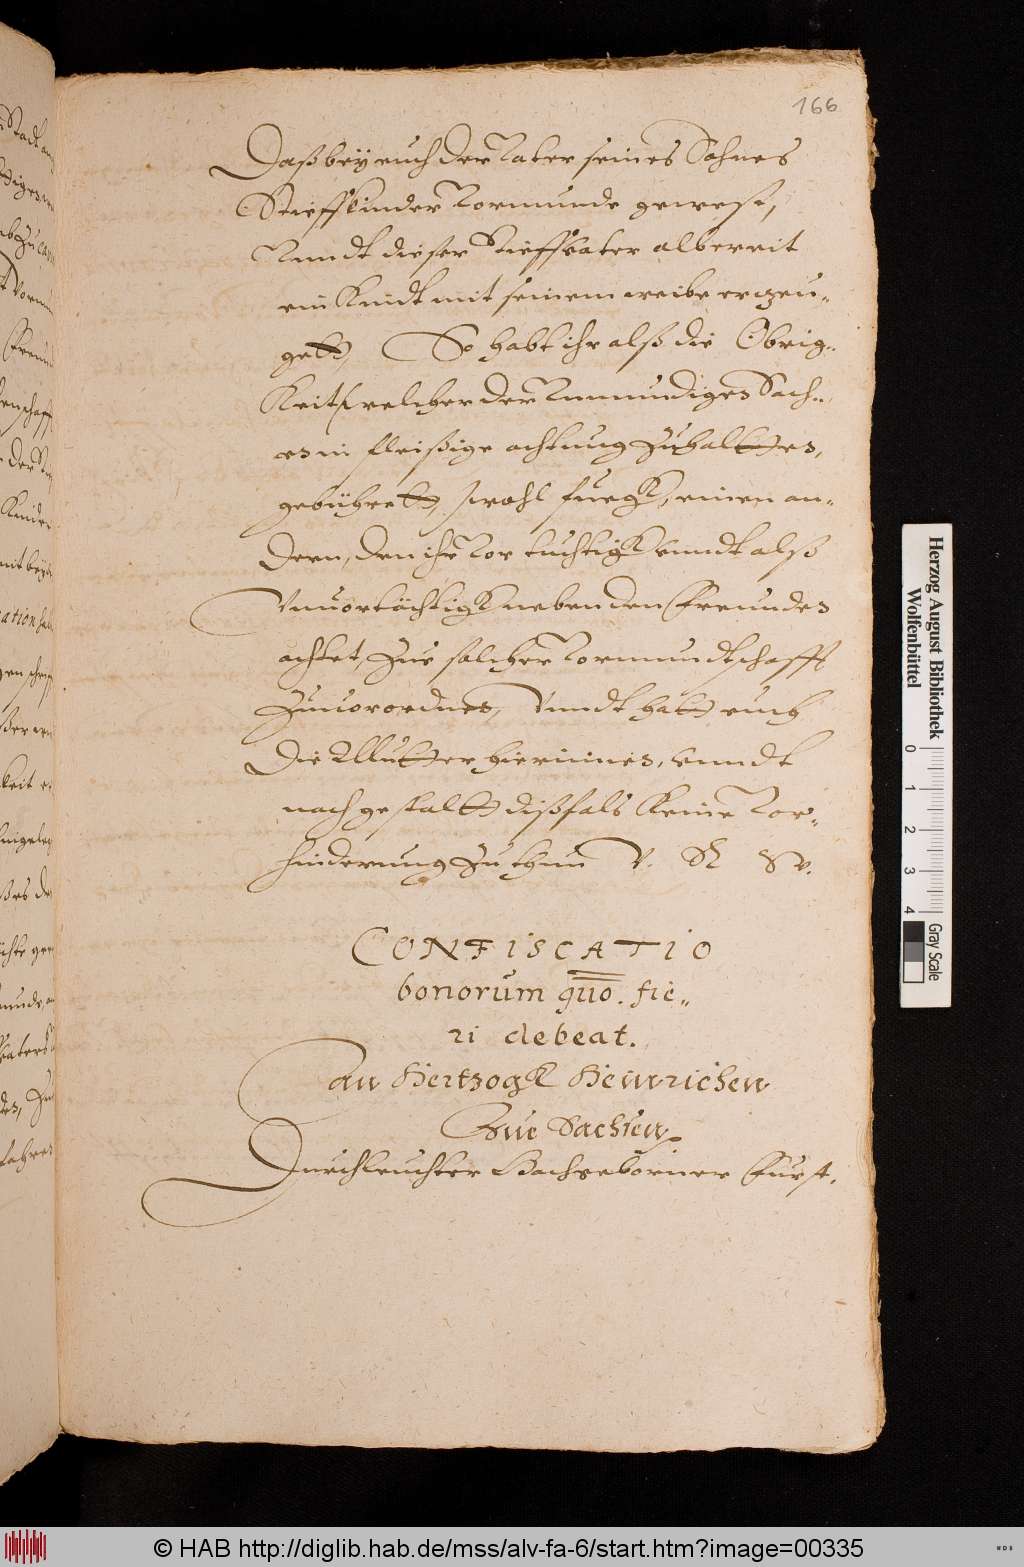 166
Daß bey euch der Vater seines Sohnes
Stieffkinder Vormunde gewest,
Vnndt dieser Stieffvater albereit
ein Kindt mit seinem weibe erzeu-
gett, So habt ihr alß die Obrig-
Keit welcher der Vnmundigen Sach-
en in fleißige achtung zu haltten,
gebühret, wohl fueg, einen an-
dern, den ihr vor tuchtigk vnndt alß
Vnuordächtigk neben den Freunden
achtet, Zue solcher Vormundtschafft
Zuuorordnen, Vnndt hatt euch
Die Mutter hierinnen, vnndt
nach gestaltt dißfals Keine Vor-
hinderung zu thun V. R W.
CONFISCATIO
bonorum quo. fie-
ri debeat.
An Hertzogk Heinrichen
Zue Sachsen.
Durchleuchter Hochgeborner Furst.
Herzog August Bibliothek
Wolfenbüttel
0 1 2 3 4
Gray Scale
© HAB http://diglib.hab.de/mss/alv-fa-6/start.htm?image=00335